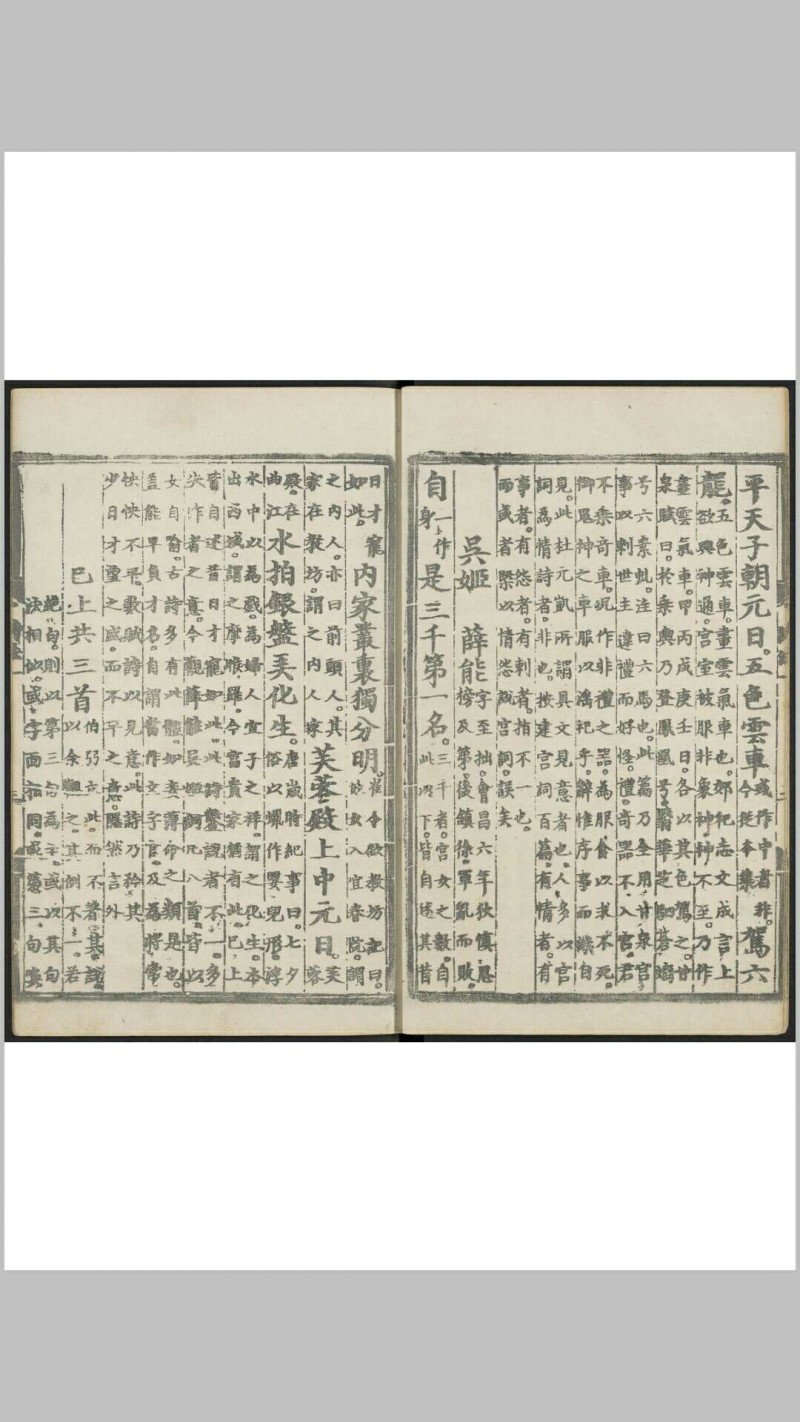 平天子朝元日。五色雲車或作中者非。今從本集駕六
龍。五色雲車。畫雲氣車也。郊祀志文成言上
欲與神通。宮室被服非象神。神不至。乃作
畫雲氣車。甲丙戊庚壬日。各以其色駕之。甘
泉賦曰。於乘輿乃登鳳凰兮翳華芝駟蒼螭
兮六素虬。注曰六馬也。此篇乃全用甘泉宮
事以刺世主違禮而好怪。禮。奇器不入宮。君
不乘奇車。况作非禮之器。為服食以求不死。
御鬼神之車服以祀乎。辭惟序事而譏自
見。此杜元凱所謂具文見意者也。人多以宮
詞為情詩者。非也。按建宮詞百篇。有情者。有
事者。有怨者。有刺者。指不一也。
而或者槩以情恣宮詞。誤矣
吳姬　薛能字至拙。會昌六年狄慎思榜及第。後鎮徐。軍亂而敗。
自一作身上是三千第一名。三千者。宮女之數。自此以下。皆自述其昔
日才寵如此。內家叢裏獨分明。崔令欽教坊記曰。妓女入宜春院。謂
之內人。亦曰前頭人。其家在教坊。謂之內人家芙蓉殿上中元日。芙蓉
殿。在曲江水拍銀盤弄化生。唐歲時紀事曰。七夕俗以蠟作嬰兒形。浮
水中以為戲。為婦人宜子之祥。謂之化生。本
出西域。謂之摩睺羅。今富貴家猶有此。已上
皆自述昔日才寵如此。此詩認者不一。多
失作者之意。今觀薛能吳姬詞凡八首。皆以
女自喻。古詩多有此體。如妾薄命之類是也。
蓋能早負才名。自謂當作文字官。及為將常
怏怏不平。數賦詩以見意。此詩乃矜其
少日才望之盛。而不平之意。隱然言外
已上共三首伯弜此。而不著其說以余觀之。其例不一。若
絕句。則以第三句為主。或以其句
法相似。或字面相同。或第三句